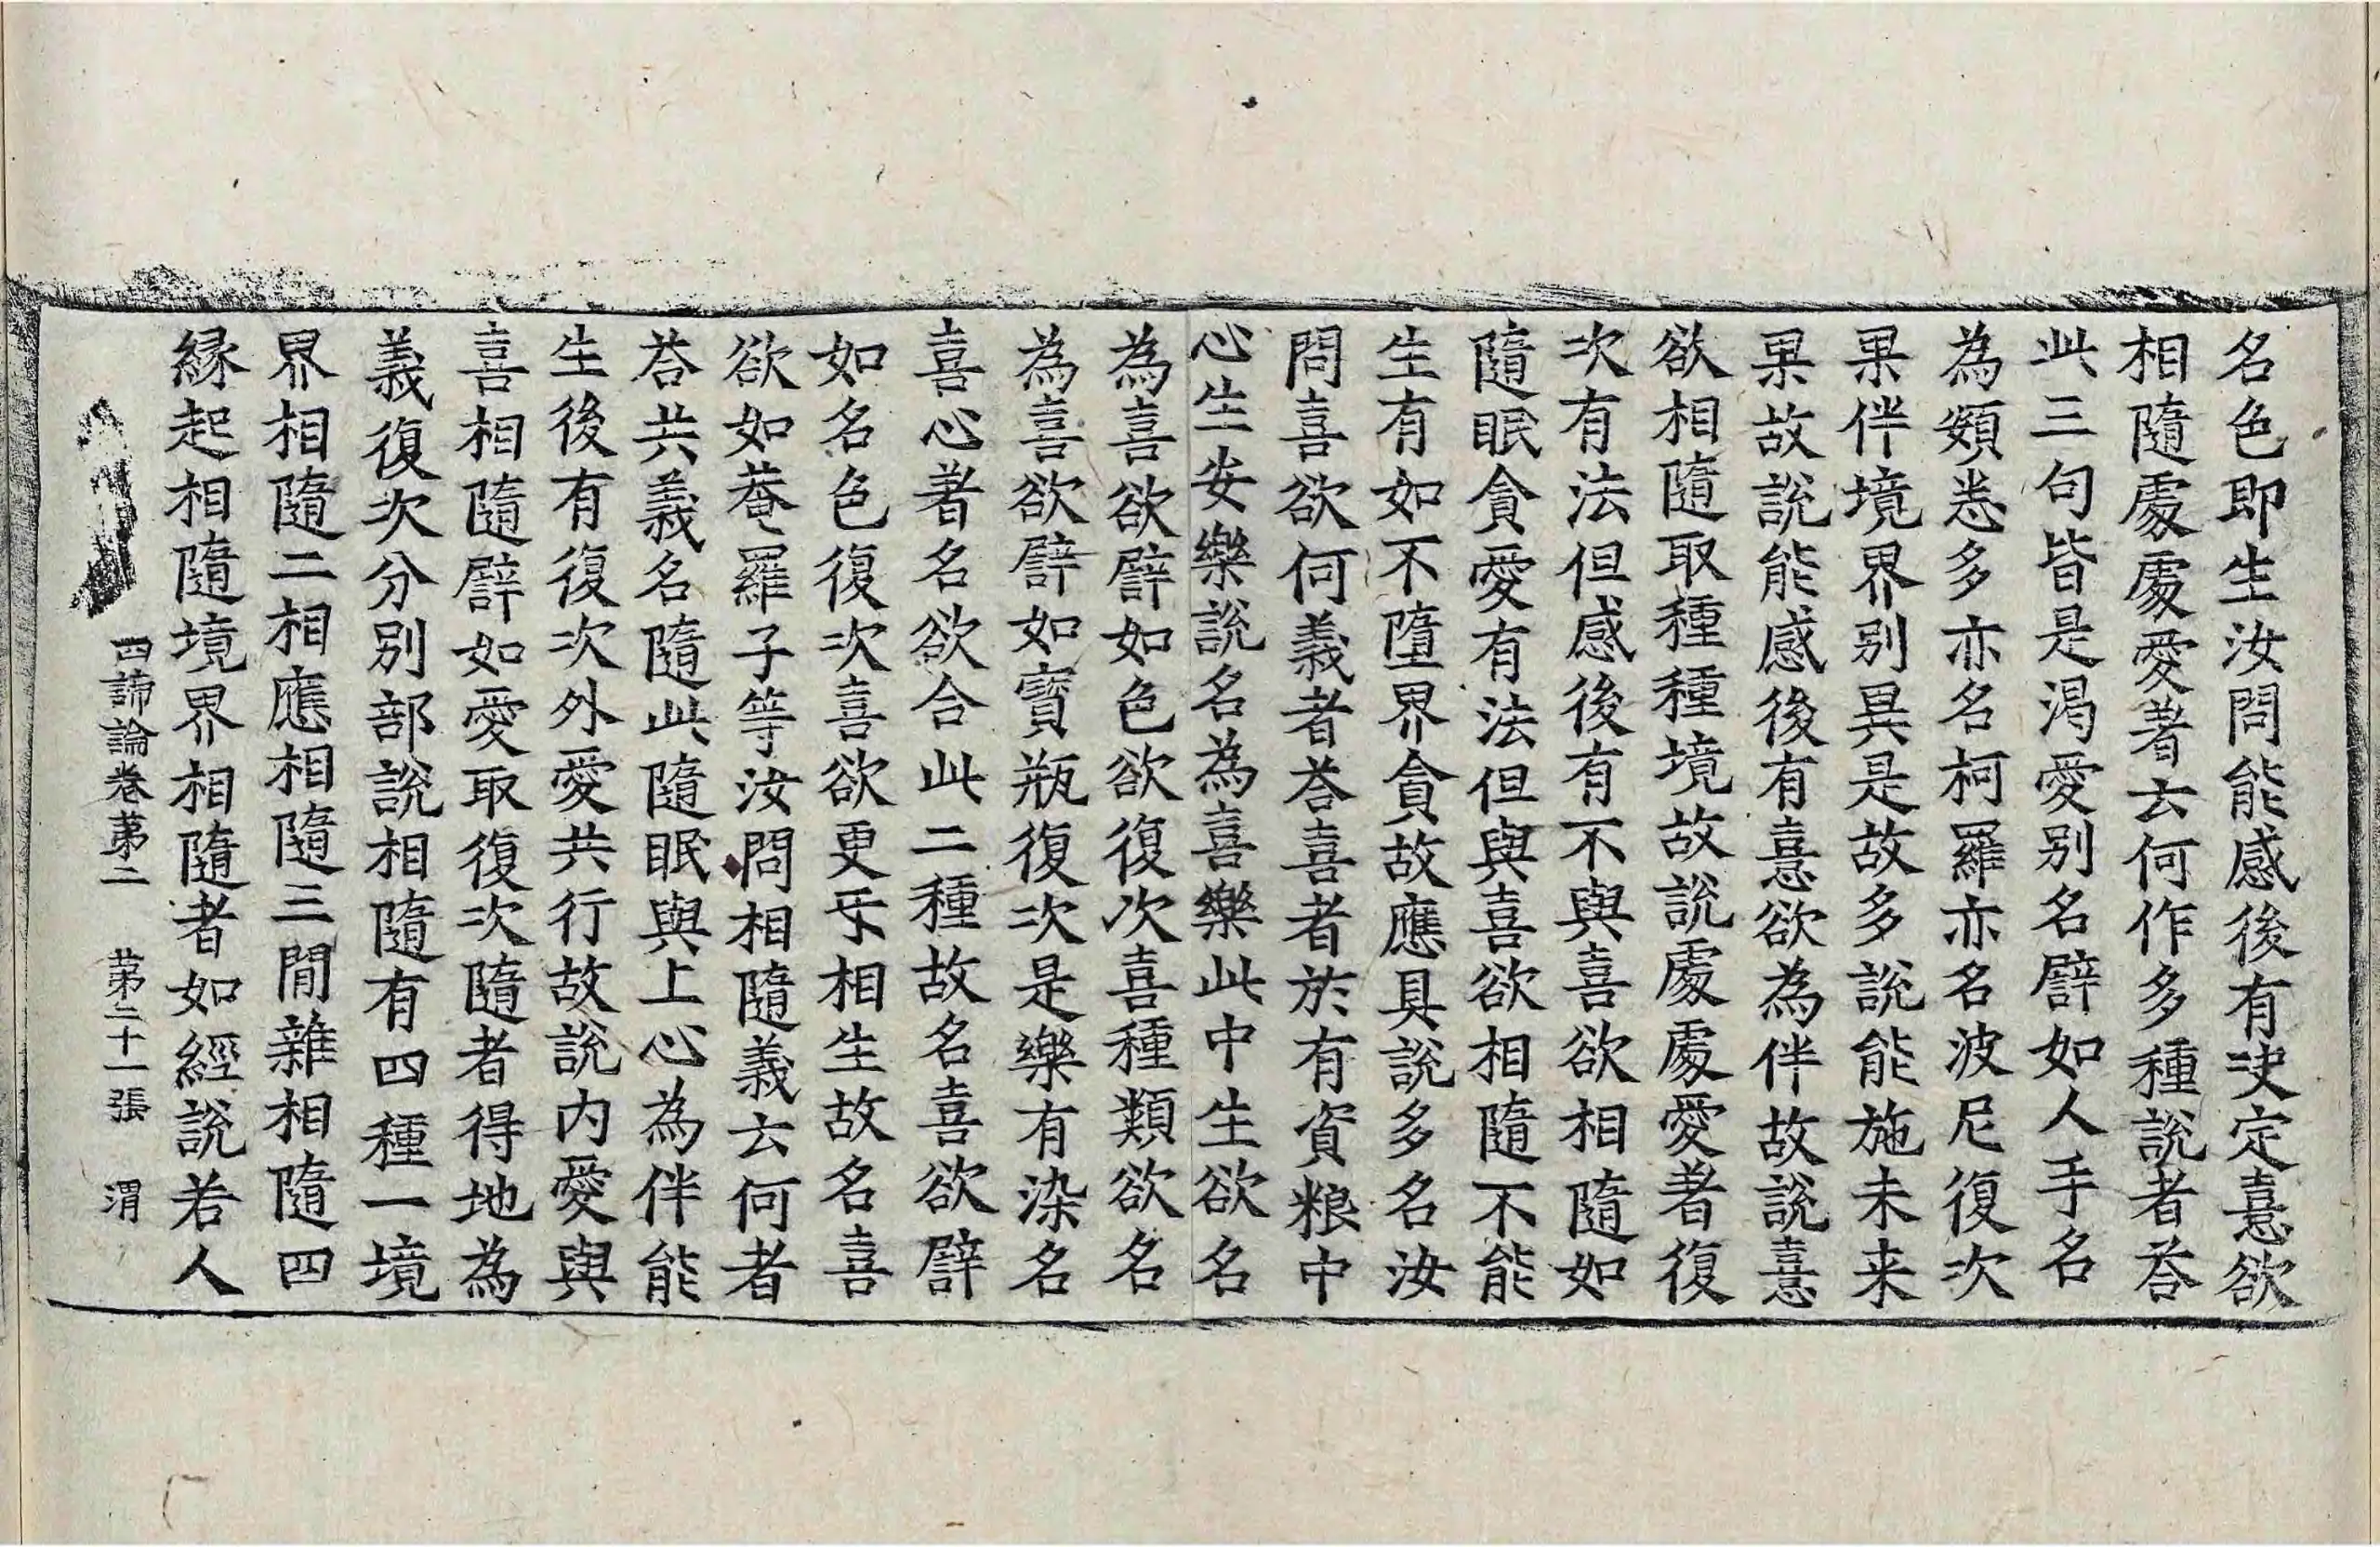 名色即生汝問能感後有决定憙欲
相隨處處愛著云何作多種說者荅
此三句皆是渴愛別名譬如人手名
為頞恙多亦名柯羅亦名波尼復次
果伴境界別異是故多說能施未来
果故說能感後有憙欲為伴故說憙
欲相隨取種種境故說處處愛著復
次有法但感後有不與喜欲相隨如
隨眠貪愛有法但與喜欲相隨不能
生有如不墮界貪故應具說多名汝
問喜欲何義者荅喜者於有資粮中
心生安樂說名為喜樂此中生欲名
為喜欲譬如色欲復次喜種類欲名
為喜欲譬如寶瓶復次是樂有染名
喜心著名欲合此二種故名喜欲譬
如名色復次喜欲更乐相生故名喜
欲如菴羅子等汝問相隨義云何者
荅共義名隨此隨眠與上心為伴能
生後有復次外愛共行故說內愛與
喜相隨譬如愛取復次隨者得地為
義復次分別部說相隨有四種一境
界相隨二相應相隨三間雜相隨四
緣起相隨境界相隨者如經說若人
四諦論卷苐二 苐二十一張 渭